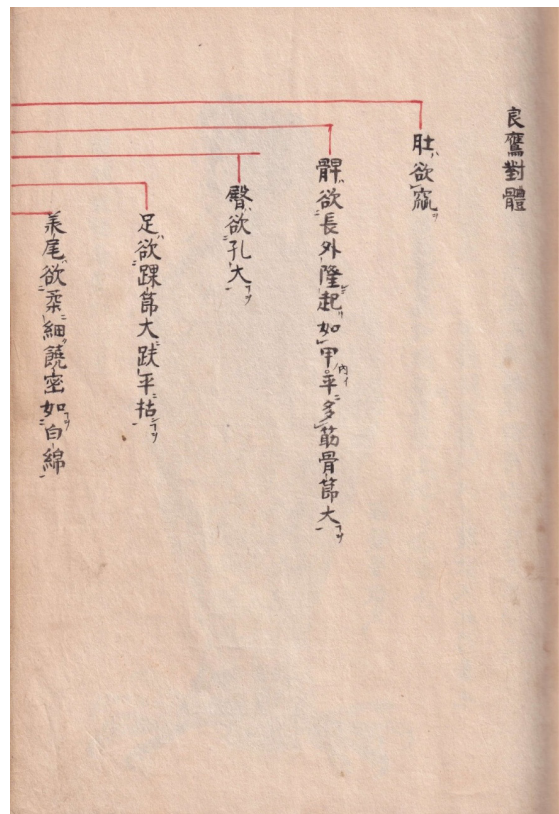 良鷹對體
肚欲窳
髀欲長外隆起如甲平多筋骨節大
臀欲孔大
足欲踝節大跋平枯
美尾欲柔細饒密如白綿